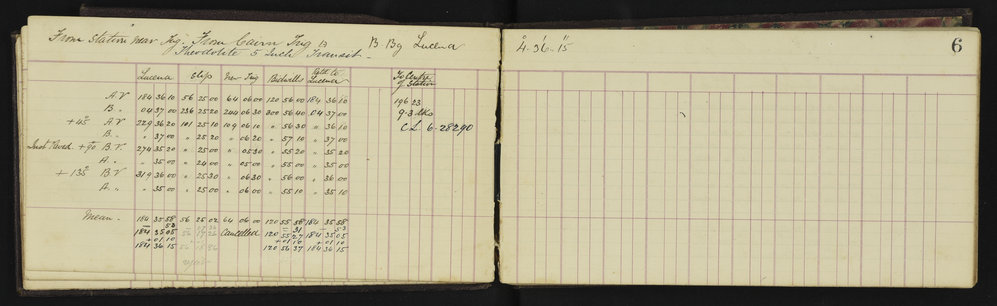 From Station near Trig. From Cairn Trig B B Bg Lucena
Theodolite 5 Inch Transit.
4. 36. 15
6
Lucena Clip New Trig Bidwills Back to Lucena To Centre of Station
A V 184 36 10 56 25 00 64 06 00 120 56 00 184 36 10 196 23
B " 04 37 00 236 25 20 244 06 30 300 56 40 04 37 00 9·3 lks
+45° A V 229 36 20 101 25 10 109 06 10 " 56 30 " 36 10 CL 6·28290
B " " 37 00 " 25 20 " 06 20 " 57 10 " 37 00
Inst. Revd. +90° B V 274 35 20 " 25 00 " 05 30 " 55 20 " 35 20
A " " 35 00 " 24 00 " 05 00 " 55 00 " 35 00
+135° B V 319 36 00 " 25 30 " 06 30 " 56 00 " 36 00
A " " 35 00 " 25 00 " 06 00 " 55 10 " 35 10
Mean. 184 35 58 56 25 02 64 06 00 120 55 58 184 35 58
– 53 – 31 – 53
184 35 05 Cancelled 120 55 27 184 35 05
+01 10 +01 10 +01 10
184 36 15 120 56 37 184 36 15